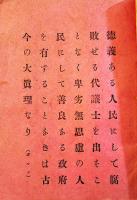 德義ある人民にして腐
敗せる代議士を出すこ
となく卑劣無思慮の人
民にして善良ある政府
を有することあきは古
今の大眞理なり